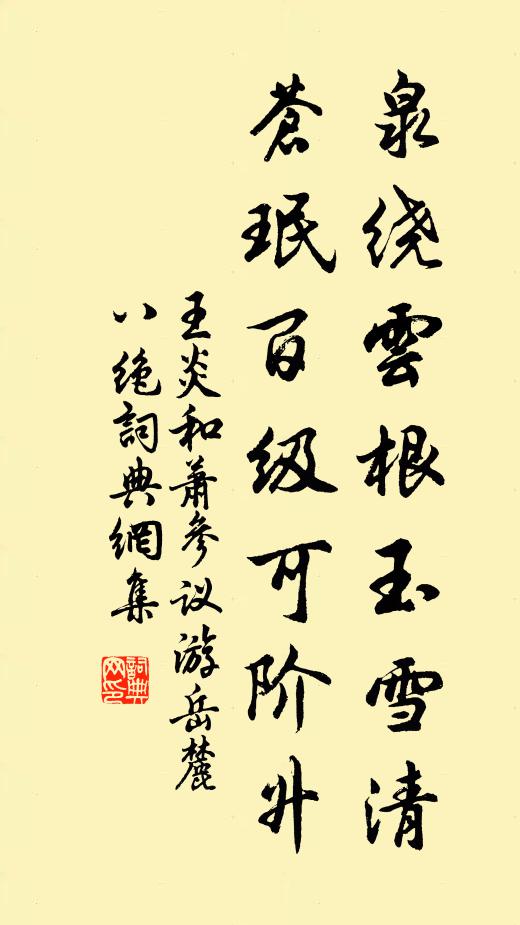 泉绕雲根玉雪清
蒼珉百级可阶升
王炎和蕭參议游岳麓
八绝詞典網集
詞典网印